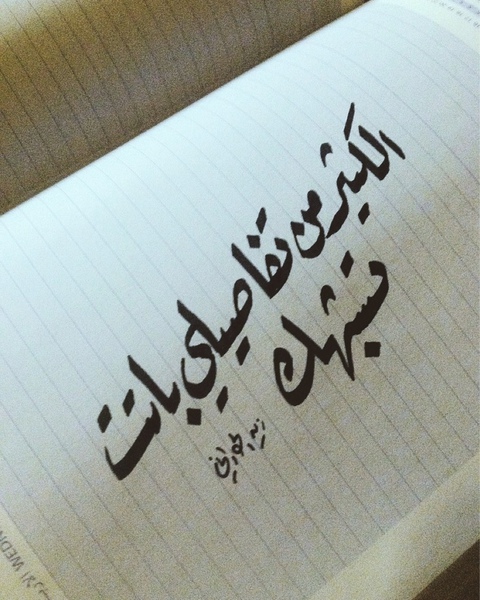 الكثير من تفاصيلي باتت
تشبهك
WEDN